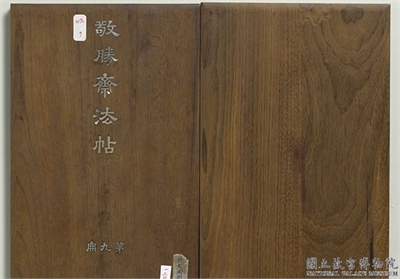 敬勝齋法帖
第九冊
國立故宮博物院
NATIONAL PALACE MUSEUM